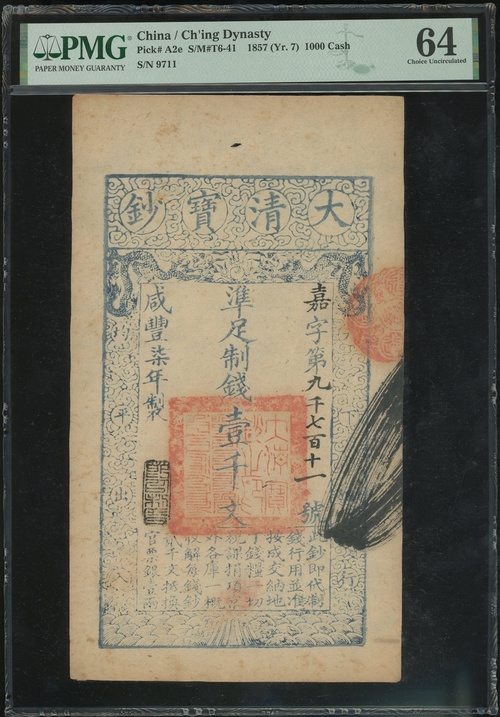 PMG
PAPER MONEY GUARANTY
China / Ch'ing Dynasty
Pick# A2e S/M#T6-41 1857 (Yr. 7) 1000 Cash
S/N 9711
64
Choice Uncirculated
大清寶鈔
嘉字第九千七百十一號
準足制錢壹千文
咸豐柒年製
此鈔即代制
錢行用並准
按成交納地
丁錢糧一切
稅課捐項
外各庫一概
收解每錢鈔
貳千文抵換
官票銀壹兩
平
出